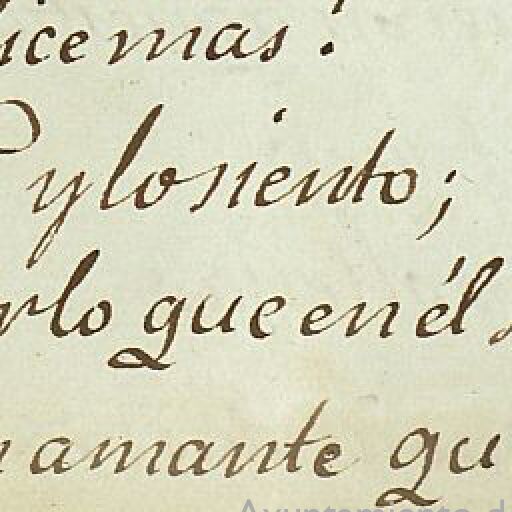 icemas!
ylosiento;
rlo queen él
amante qu
Ayuntamiento d